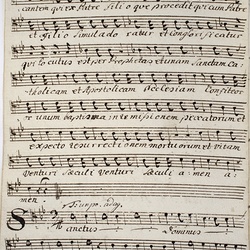 cantem qui ex Patre Filioque procedit qui cum Patre
et Filio simul ado ratur et Conglorificatur
qui locutus est per Prophetas et unam Sanctam Ca,
tholicam et Apostolicam Ecclesiam Confiteor
re unum baptisma in remissionem peccatorum et
expecto resurrectionem mortuorum et vitam
Venturi Sæculi Venturi Sæculi a men a
men.
Sanctus Dominus